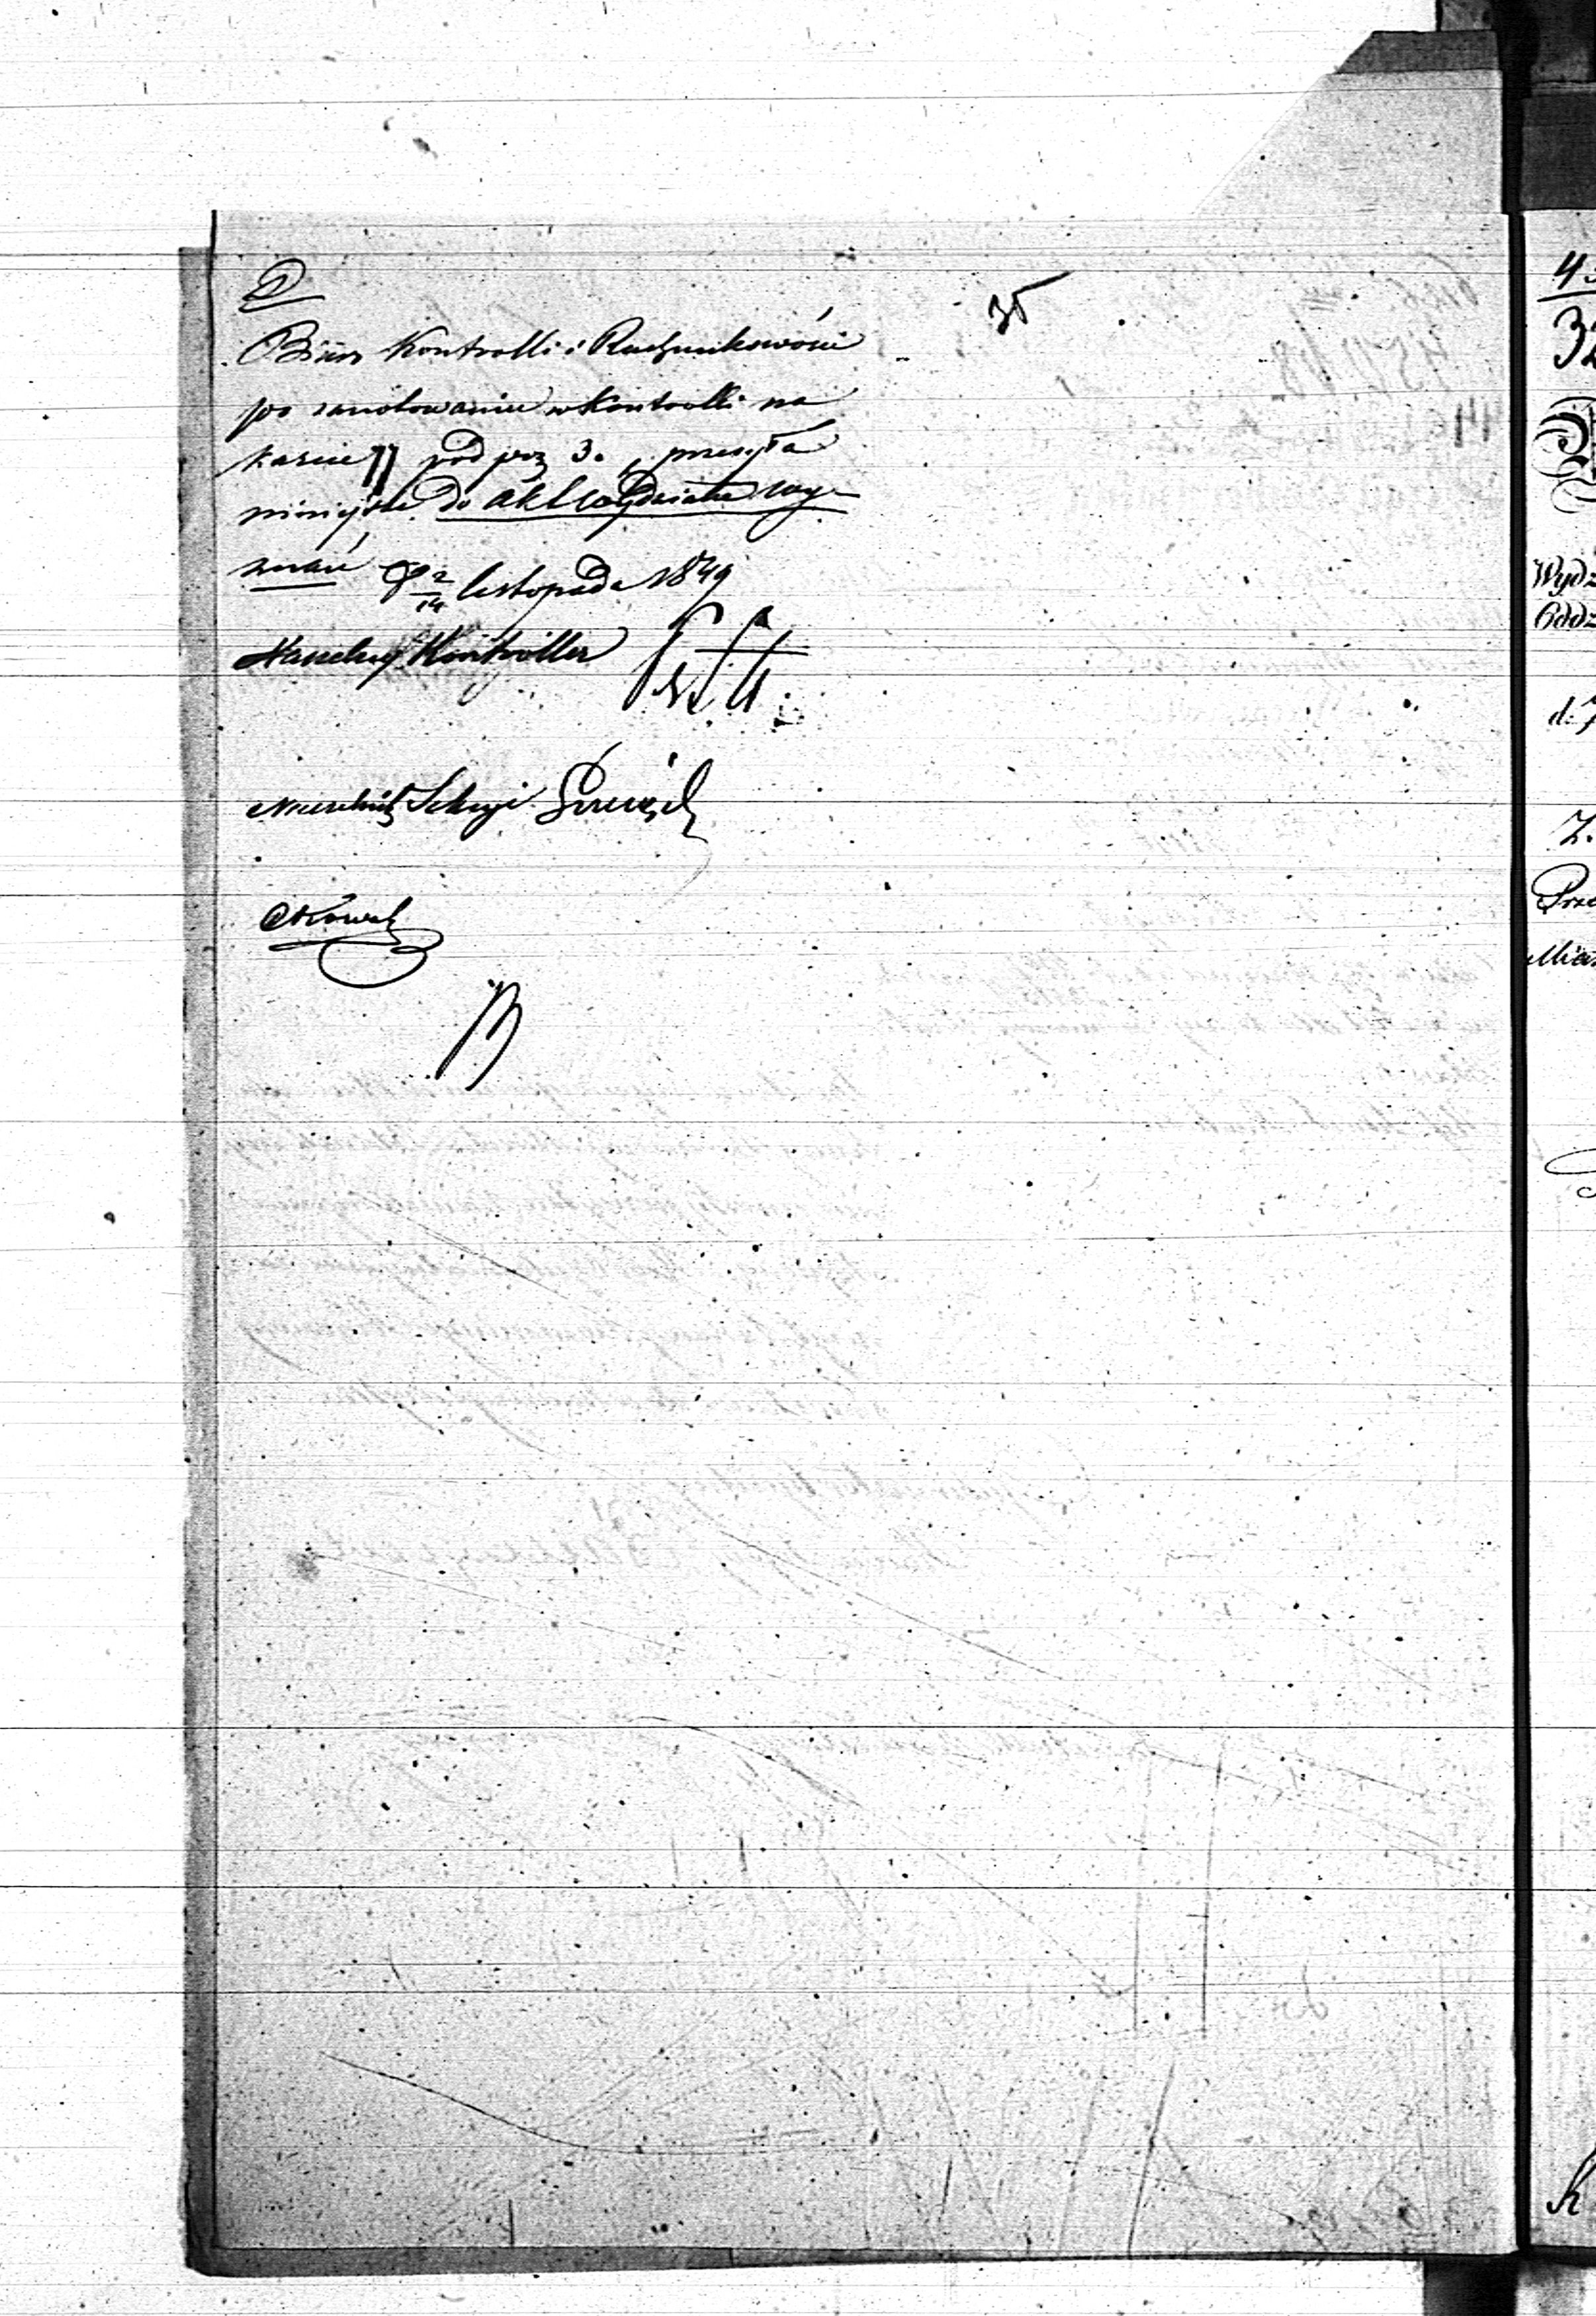 35
Biuro Kontrolli i Rachunkowości
po zanotowaniu w Kontrolli na
karcie 11 pod poz 3. przesyła
niniejsze do akt Wydziału Wy-
znań D 2/14 listopada 1849
Naczelny Kontroller
Naczelnik Sekcyi
Nowak
4
32
Wydz
Oddz
d. 7
Z.